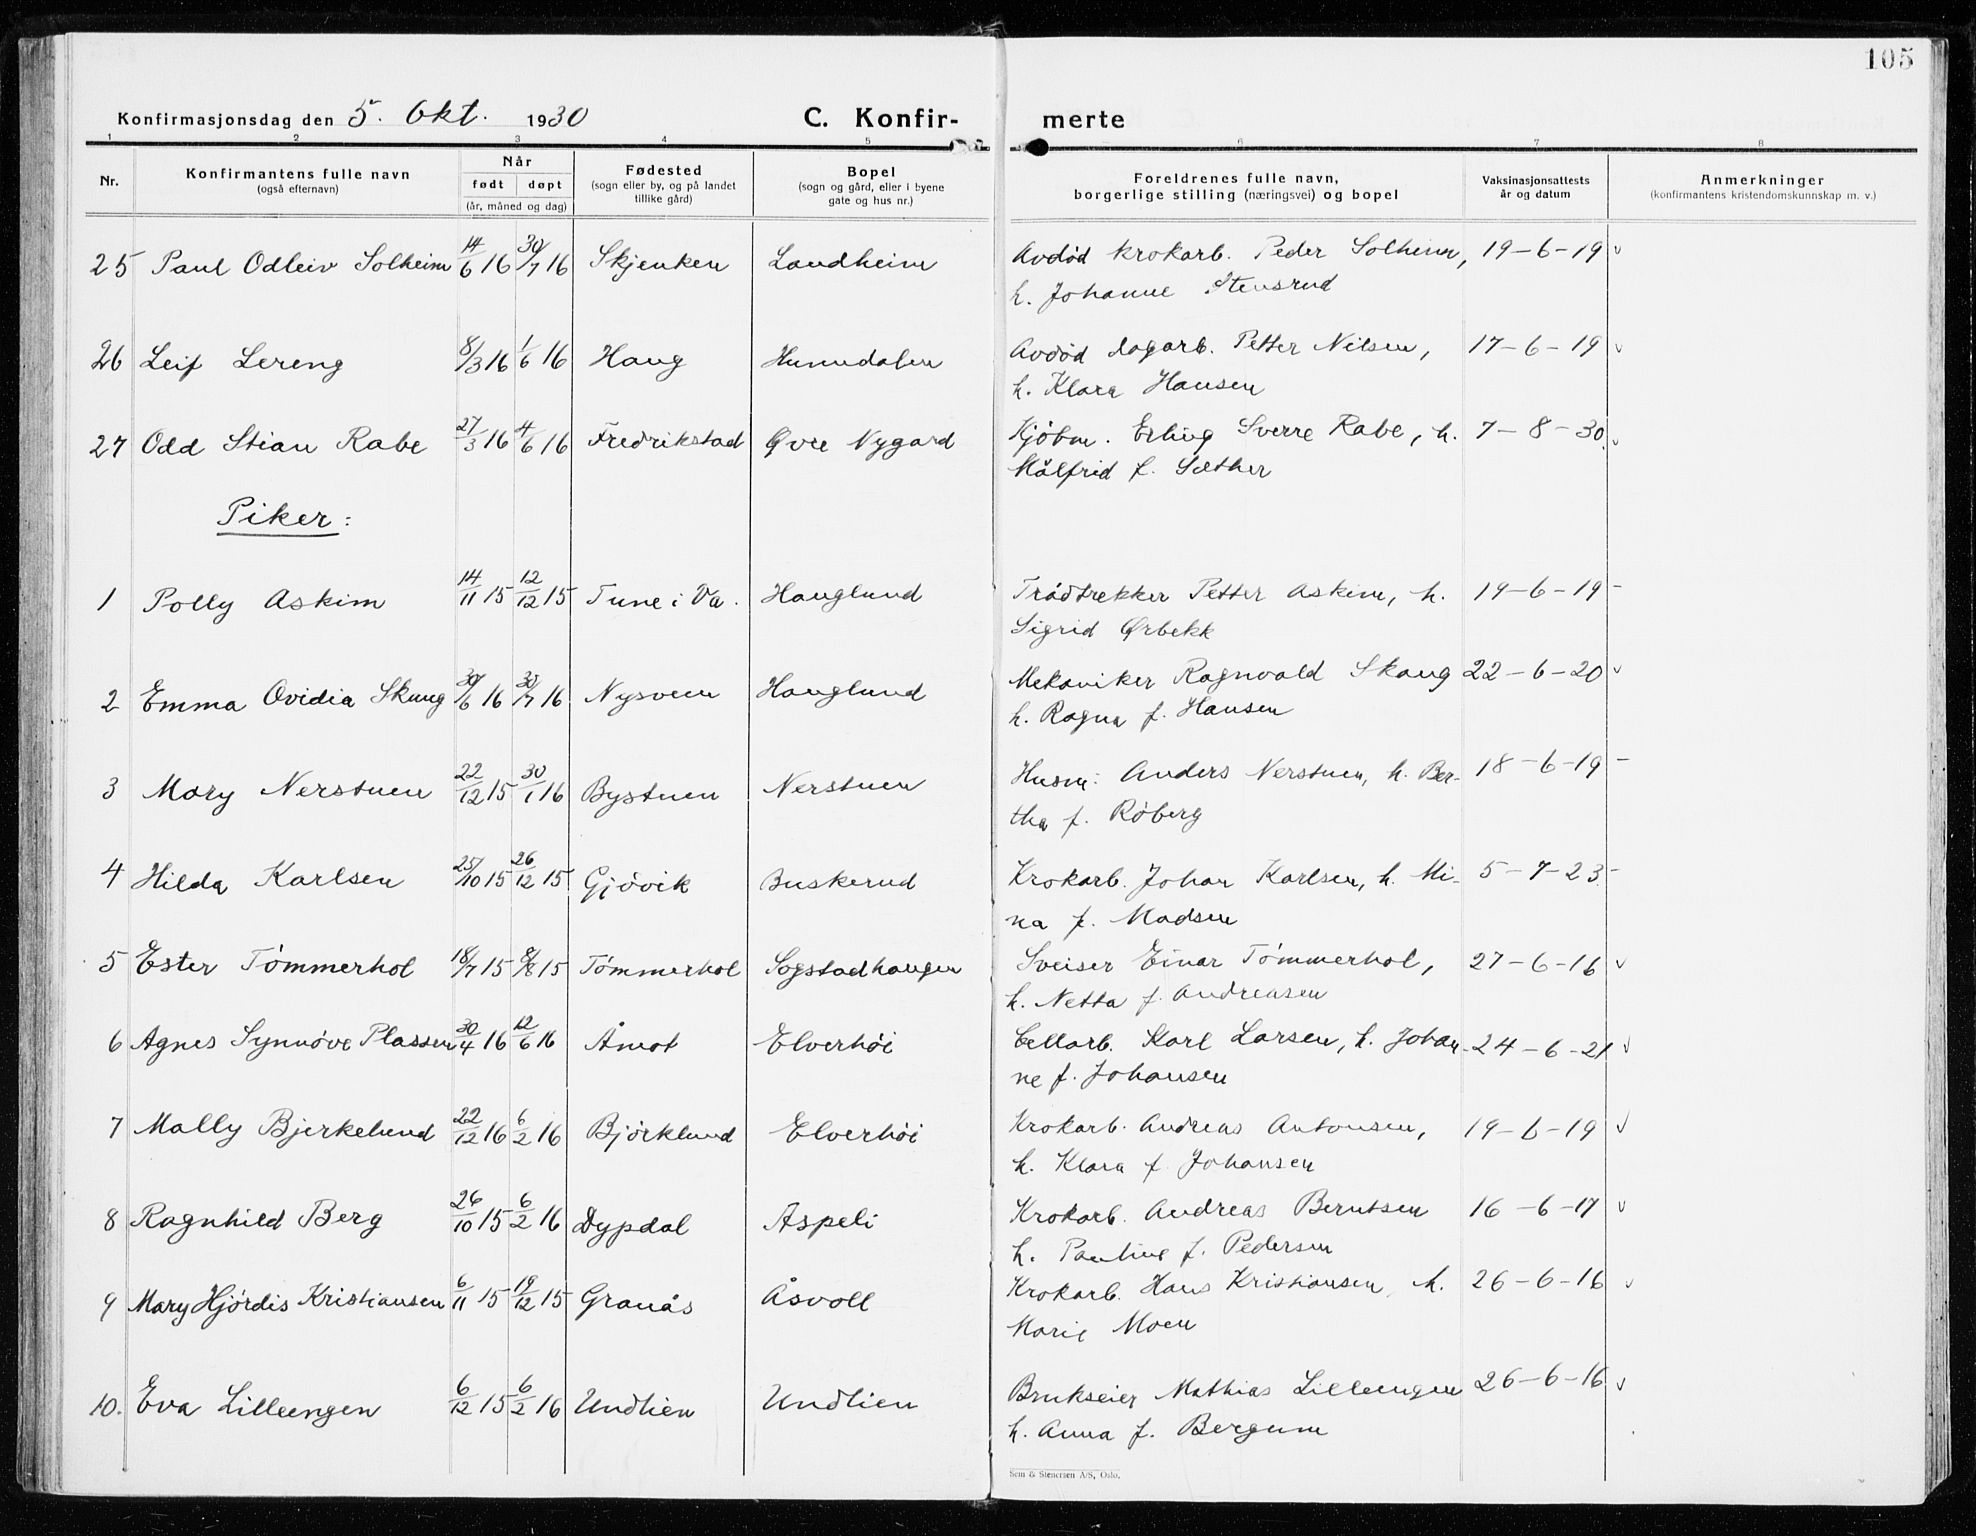 105
Konfirmasjonsdag den 5. Okt. 1930 C. Konfir- merte
1 2 3 4 5 6 7 8
Nr. Konfirmantens fulle navn (også efternavn) Når født døpt (år, måned og dag) Fødested (sogn eller by, og på landet tillike gård) Bopel (sogn og gård, eller i byene gate og hus nr.) Foreldrenes fulle navn, borgerlige stilling (næringsvei) og bopel Vaksinasjonsattests år og datum Anmerkninger (konfirmantens kristendomskunnskap m. v.)
25 Paul Odleiv Solheim 14/6 16 30/7 16 Skjenken Landheim Avdød krokarb. Peder Solheim, 19-6-19
h. Johanne Stensrud
26 Leif Lereng 8/3 16 1/6 16 Haug Hunndalen Avdød dagarb. Petter Nilsen, 17-6-19
h. Klara Hansen
27 Odd Stian Rabe 27/3 16 4/6 16 Fredrikstad Øvre Nygard Kjøbm. Erling Sverre Rabe, h. 7-8-30
Målfrid f. Sæther
Piker:
1 Polly Askim 14/11 15 12/12 15 Tune i Va. Hauglund Trådtrekker Petter Askim, h. 19-6-19 -
Sigrid Ørbekk
2 Emma Ovidia Skaug 30/6 16 30/7 16 Nysveen Hauglund Mekaniker Ragnvald Skaug 22-6-20
h. Ragna f. Hansen
3 Mary Nerstuen 22/12 15 30/1 16 Bystuen Nerstuen Husm. Anders Nerstuen, h. Ber- 18-6-19 -
tha f. Røberg
4 Hilda Karlsen 25/10 15 26/12 15 Gjøvik Buskerud Krokarb. Johan Karlsen, h. Mi- 5-7-23 -
na f. Madsen
5 Ester Tømmerhol 18/7 15 8/8 15 Tømmerhol Sogstadhaugen Sveiser Einar Tømmerhol, 27-6-16
h. Netta f. Andreasen
6 Agnes Synnøve Plassen 30/4 16 12/6 16 Åmot Elverhøi Cellarb. Karl Larsen, h. Johan- 24-6-21
ne f. Johansen
7 Mally Bjerkelund 22/12 16 6/2 16 Bjørklund Elverhøi Krokarb. Andreas Antonsen, 19-6-19
h. Klara f. Johansen
8 Ragnhild Berg 26/10 15 6/2 16 Dypdal Aspeli Krokarb. Andreas Berntsen 16-6-17
h. Pauline f. Pedersen
9 Mary Hjørdis Kristiansen 6/11 15 19/12 15 Granås Åsvoll Krokarb. Hans Kristiansen, h. 26-6-16
Marie Moen
10. Eva Lilleengen 6/12 15 6/2 16 Undlien Undlien Brukseier Mathias Lilleengen 26-6-16
h. Anna f. Bergum
Sem & Stenersen A/S, Oslo.